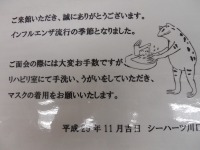 ご来館いただき、誠にありがとうございます。
インフルエンザ流行の季節となりました。
ご面会の際には大変お手数ですが
リハビリ室にて手洗い、うがいをしていただき、
マスクの着用をお願いいたします。
平成 年11月吉日 シーハーツ川口